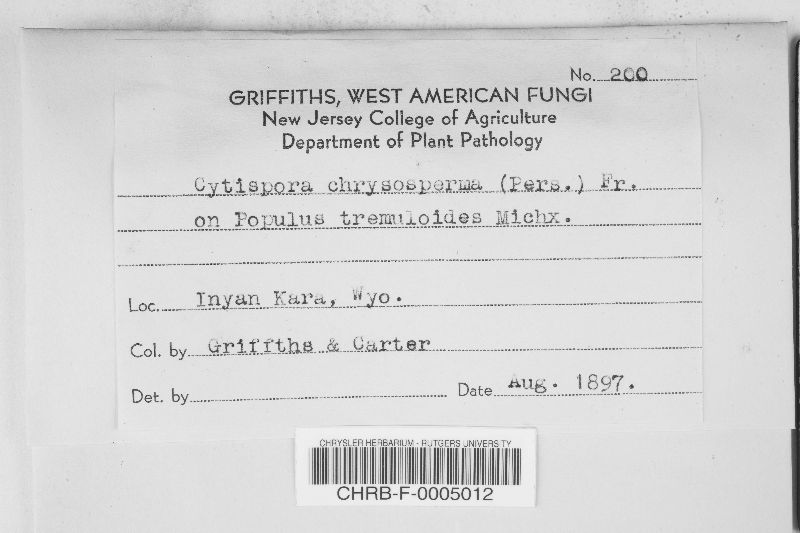 No. 200
GRIFFITHS, WEST AMERICAN FUNGI
New Jersey College of Agriculture
Department of Plant Pathology
Cytispora chrysosperma (Pers.) Fr.
on Populus tremuloides Michx.
Loc. Inyan Kara, Wyo.
Col. by Griffths & Carter
Det. by Date Aug. 1897.
CHRYSLER HERBARIUM - RUTGERS UNIVERSITY
CHRB-F-0005012